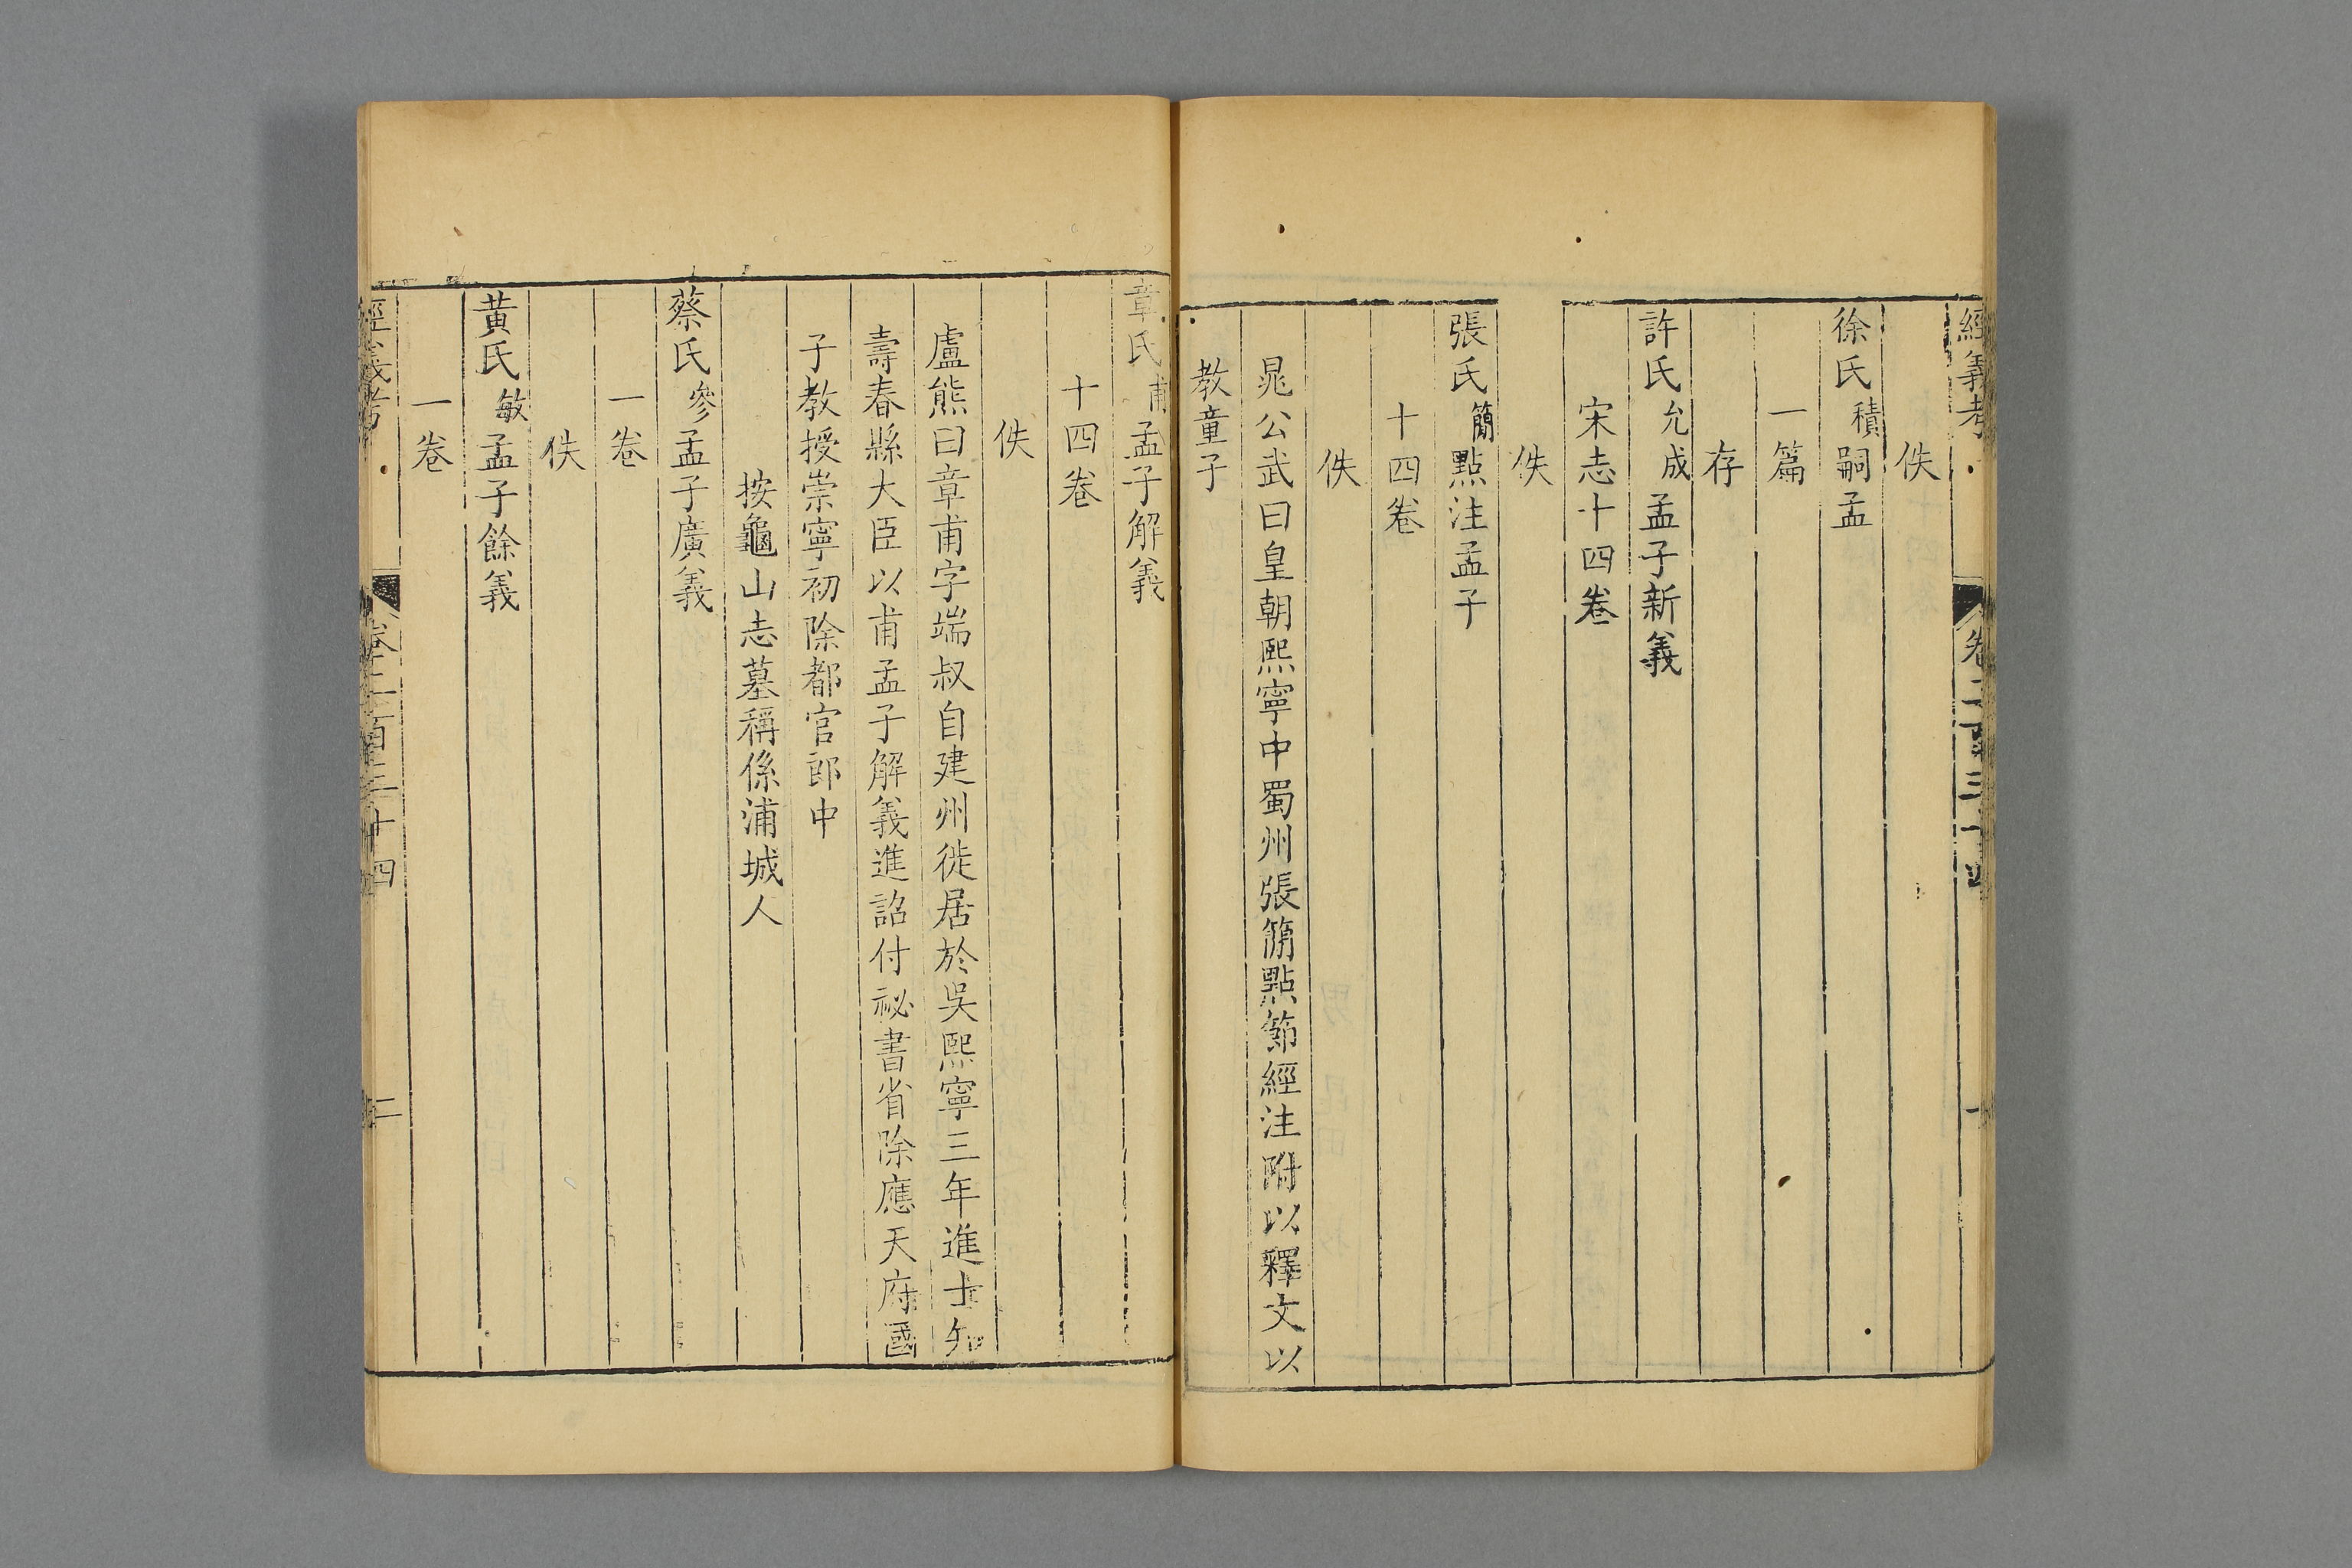 經義考 卷二百三十四 一
佚
徐氏積嗣孟
一篇
存
許氏允成孟子新義
宋志十四卷
佚
張氏簡點注孟子
十四卷
佚
晁公武曰皇朝熙寧中蜀州張簡點節經注附以釋文以
教童子
章氏甫孟子解義
十四卷
佚
盧熊曰章甫字端叔自建州徙居於吳熙寧三年進士知
壽春縣大臣以甫孟子解義進詔付祕書省除應天府國
子教授崇寧初除都官郎中
按龜山志墓稱係浦城人
蔡氏參孟子廣義
一卷
佚
黃氏敏孟子餘義
一卷
經義考 卷二百三十四 二